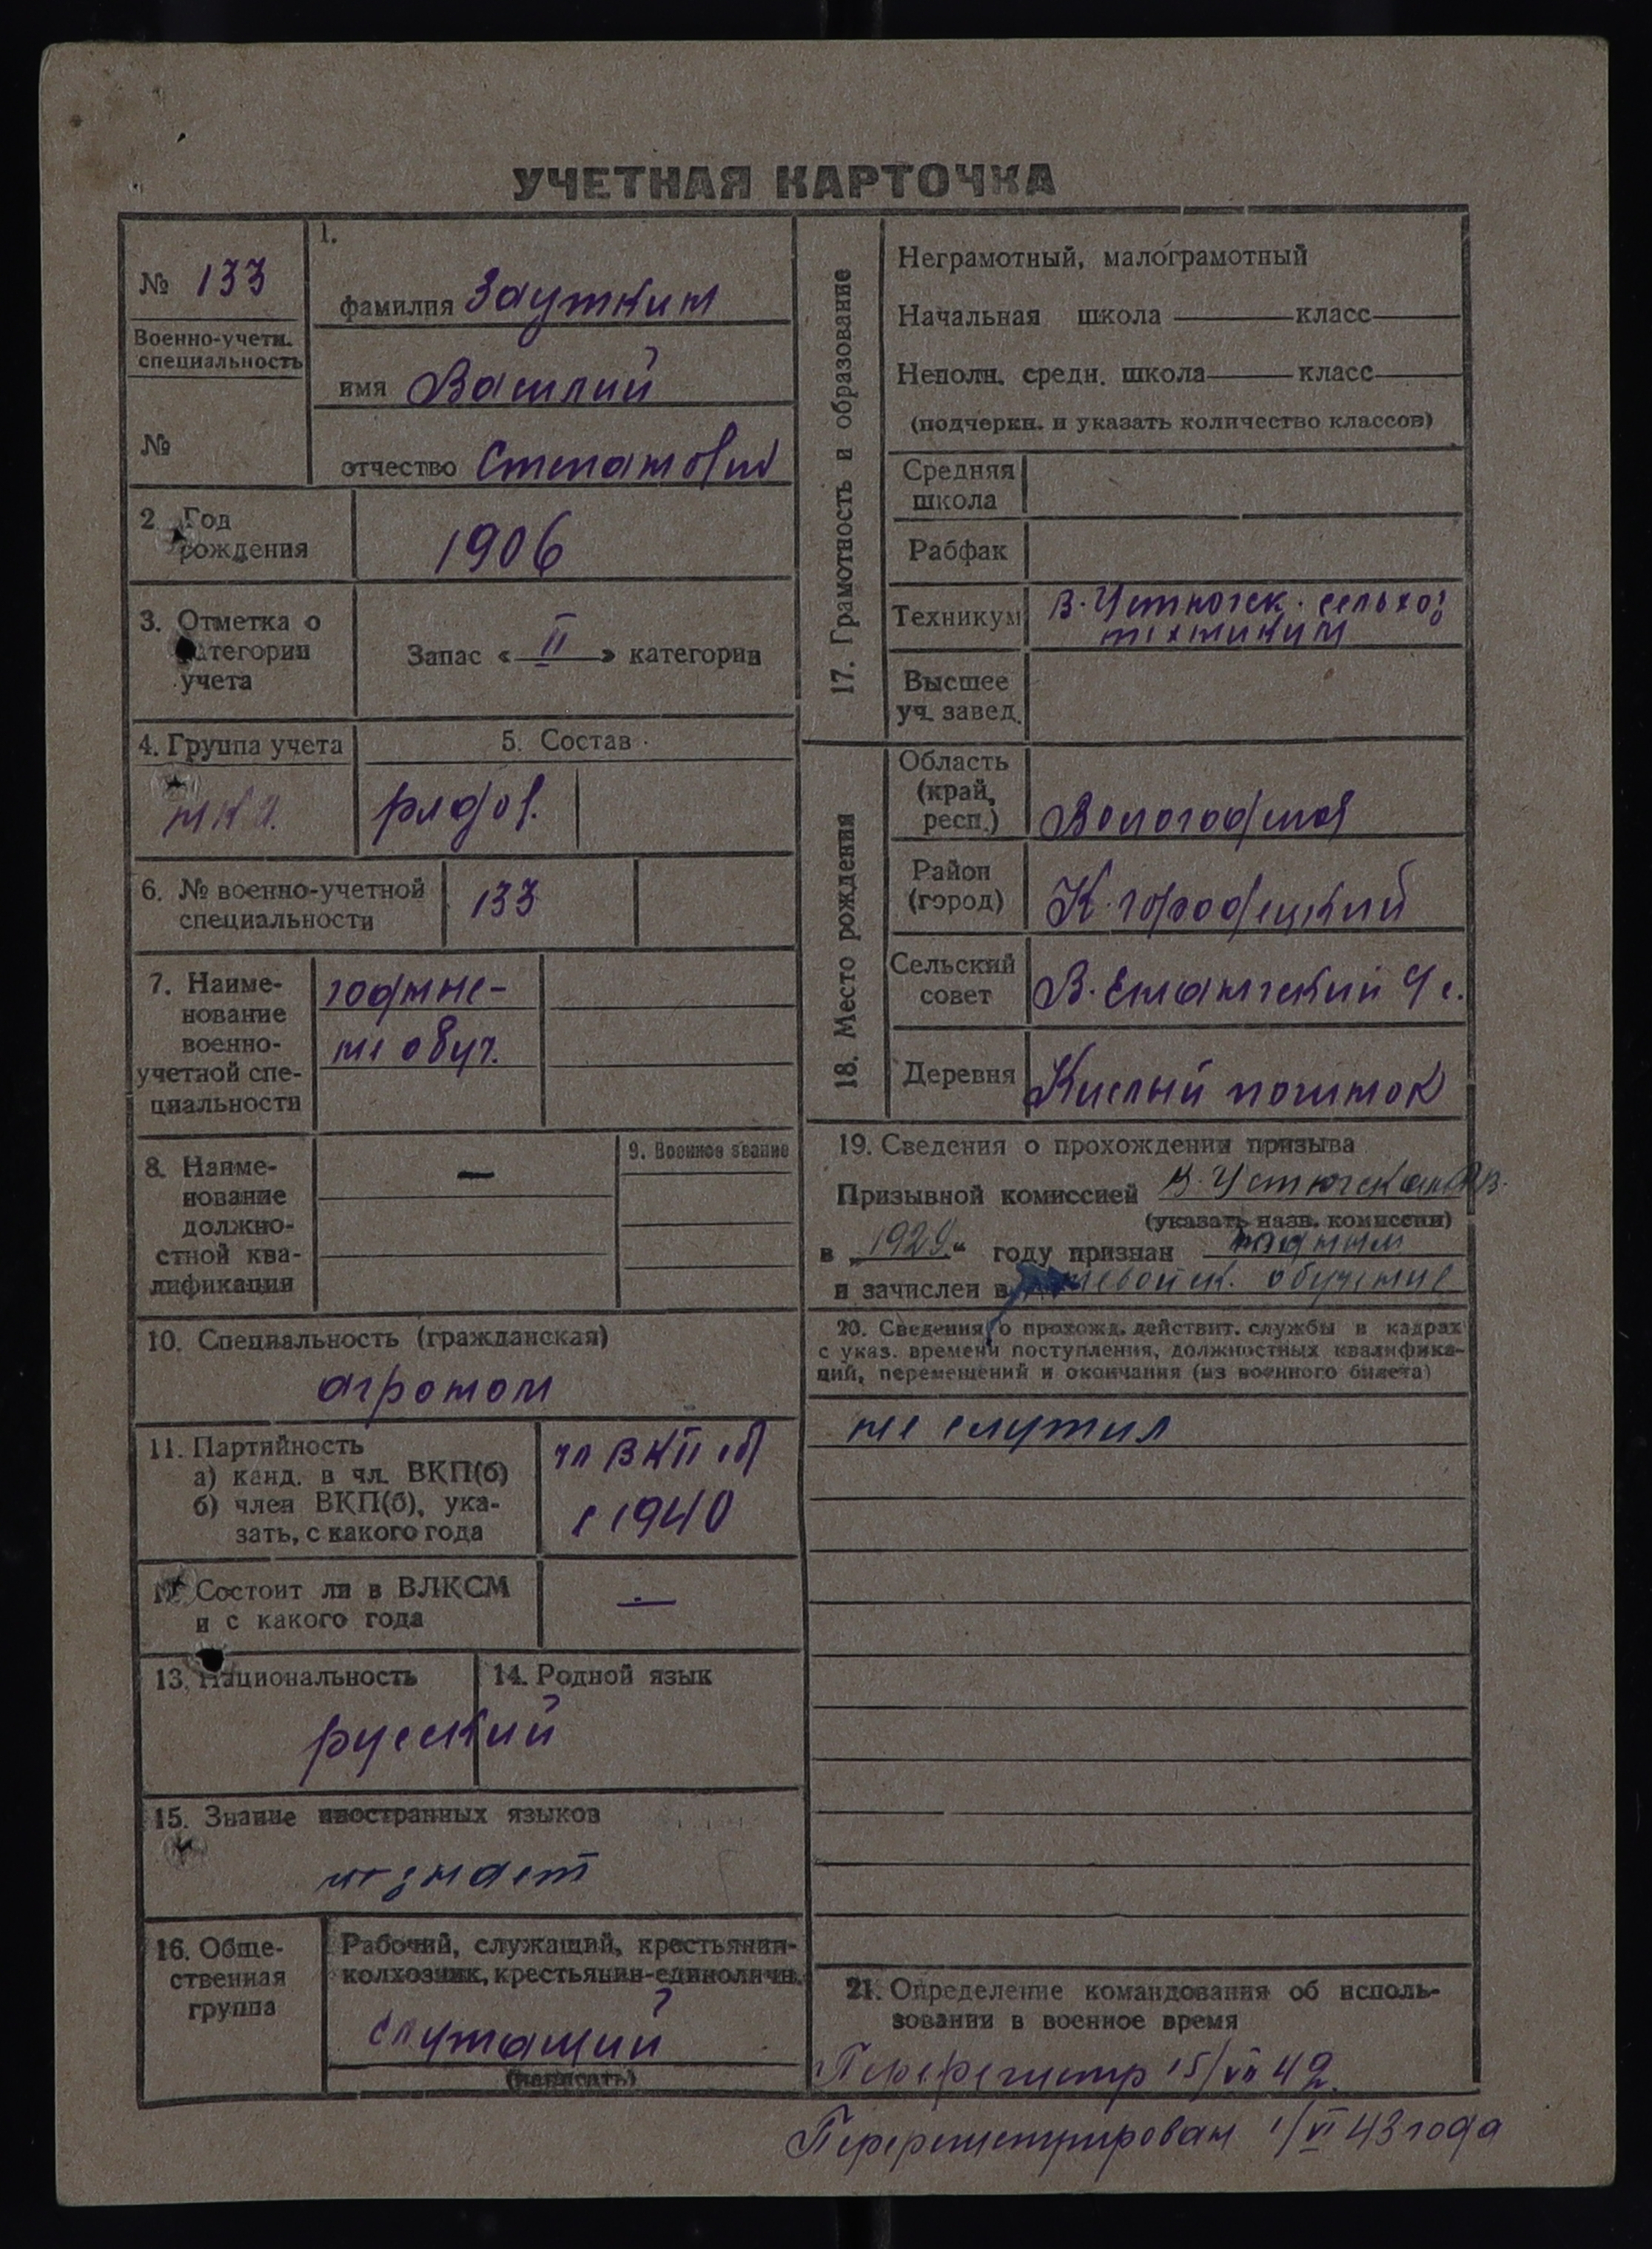 УЧЕТНАЯ КАРТОЧКА
№ 133
Военно-учетн.
специальность
№
1.
фамилия Зауткин
имя Василий
отчество Степанович
2 Год
рождения
1906
3. Отметка о
категории
учета
Запас « II » категории
4. Группа учета
5. Состав
рядов.
6. № военно-учетной
специальности
133
7. Наиме-
нование
военно-
учетной спе-
циальности
годные-
не обуч.
8. Наиме-
нование
должно-
стной ква-
лификации
—
9. Военное звание
10. Специальность (гражданская)
агроном
11. Партийность
а) канд. в чл. ВКП(б)
б) член ВКП(б), ука-
зать, с какого года
чл ВКП(б)
с 1940
12 Состоит ли в ВЛКСМ
и с какого года
—
13. Национальность
14. Родной язык
русский
15. Знание иностранных языков
не знает
16. Обще-
ственная
группа
Рабочий, служащий, крестьянин-
колхозник, крестьянин-единоличн.
служащий
(написать)
17. Грамотность и образование
Неграмотный, малограмотный
Начальная школа — класс —
Неполн. средн. школа — класс —
(подчеркн. и указать количество классов)
Средняя
школа
Рабфак
Техникум
В-Устюгск. сельхоз
техникум
Высшее
уч. завед.
18. Место рождения
Область
(край,
респ.)
Вологодская
Район
(город)
К-городецкий
Сельский
совет
В-Ентангский с.
Деревня
Кислый починок
19. Сведения о прохождении призыва
Призывной комиссией В-Устюгской
(указать назв. комиссии)
в „1929" году признан годным
и зачислен в невойск. обучение
20. Сведения о прохожд. действит. службы в кадрах
с указ. времени поступления, должностных квалифика-
ций, перемещений и окончания (из военного билета)
не служил
21. Определение командования об исполь-
зовании в военное время
Перерегистр 15/VII 42
Перерегистрирован 1/VI 43 года